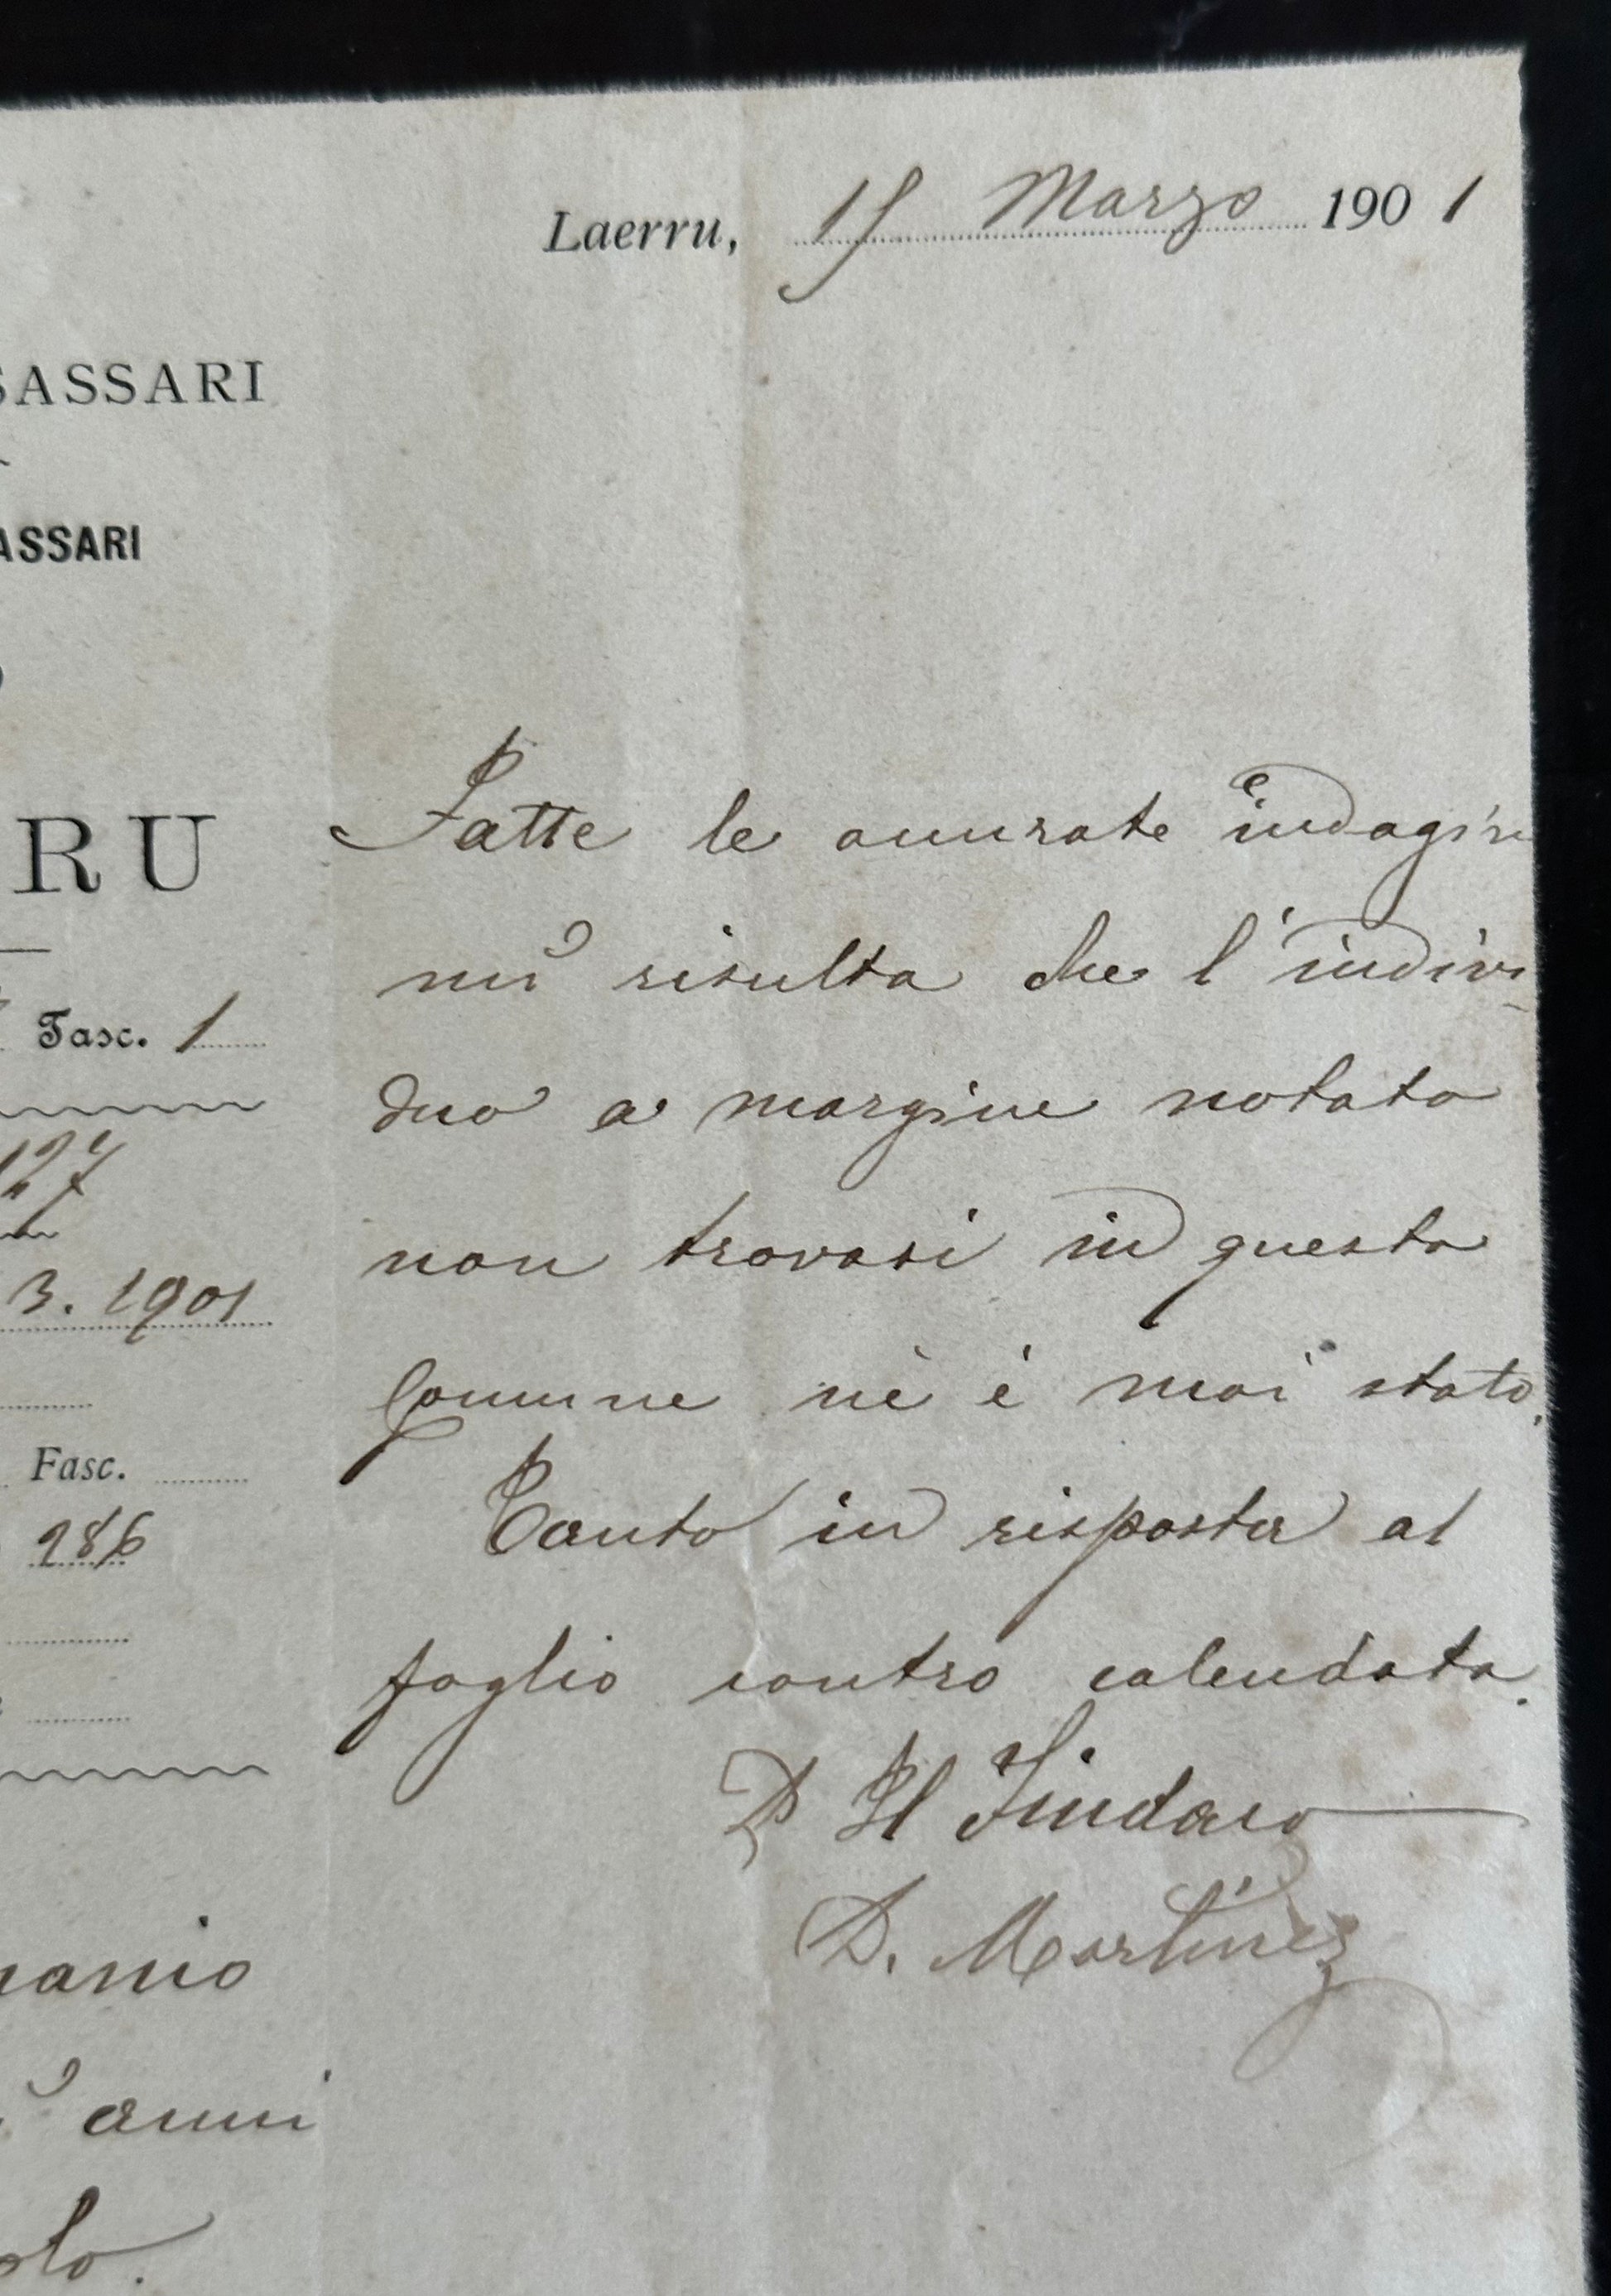 Laerru, 15 Marzo 1901
SASSARI
ASSARI
RU
Fasc. 1
127
3. 1901
Fasc.
286
nanio
anni
olo.
Fatte le accurate indagini
mi risulta che l'indivi-
duo a margine notato
non trovasi in questo
Comune nè è mai stato.
Tanto in risposta al
foglio contro calendato.
P Il Sindaco
D. Martinez